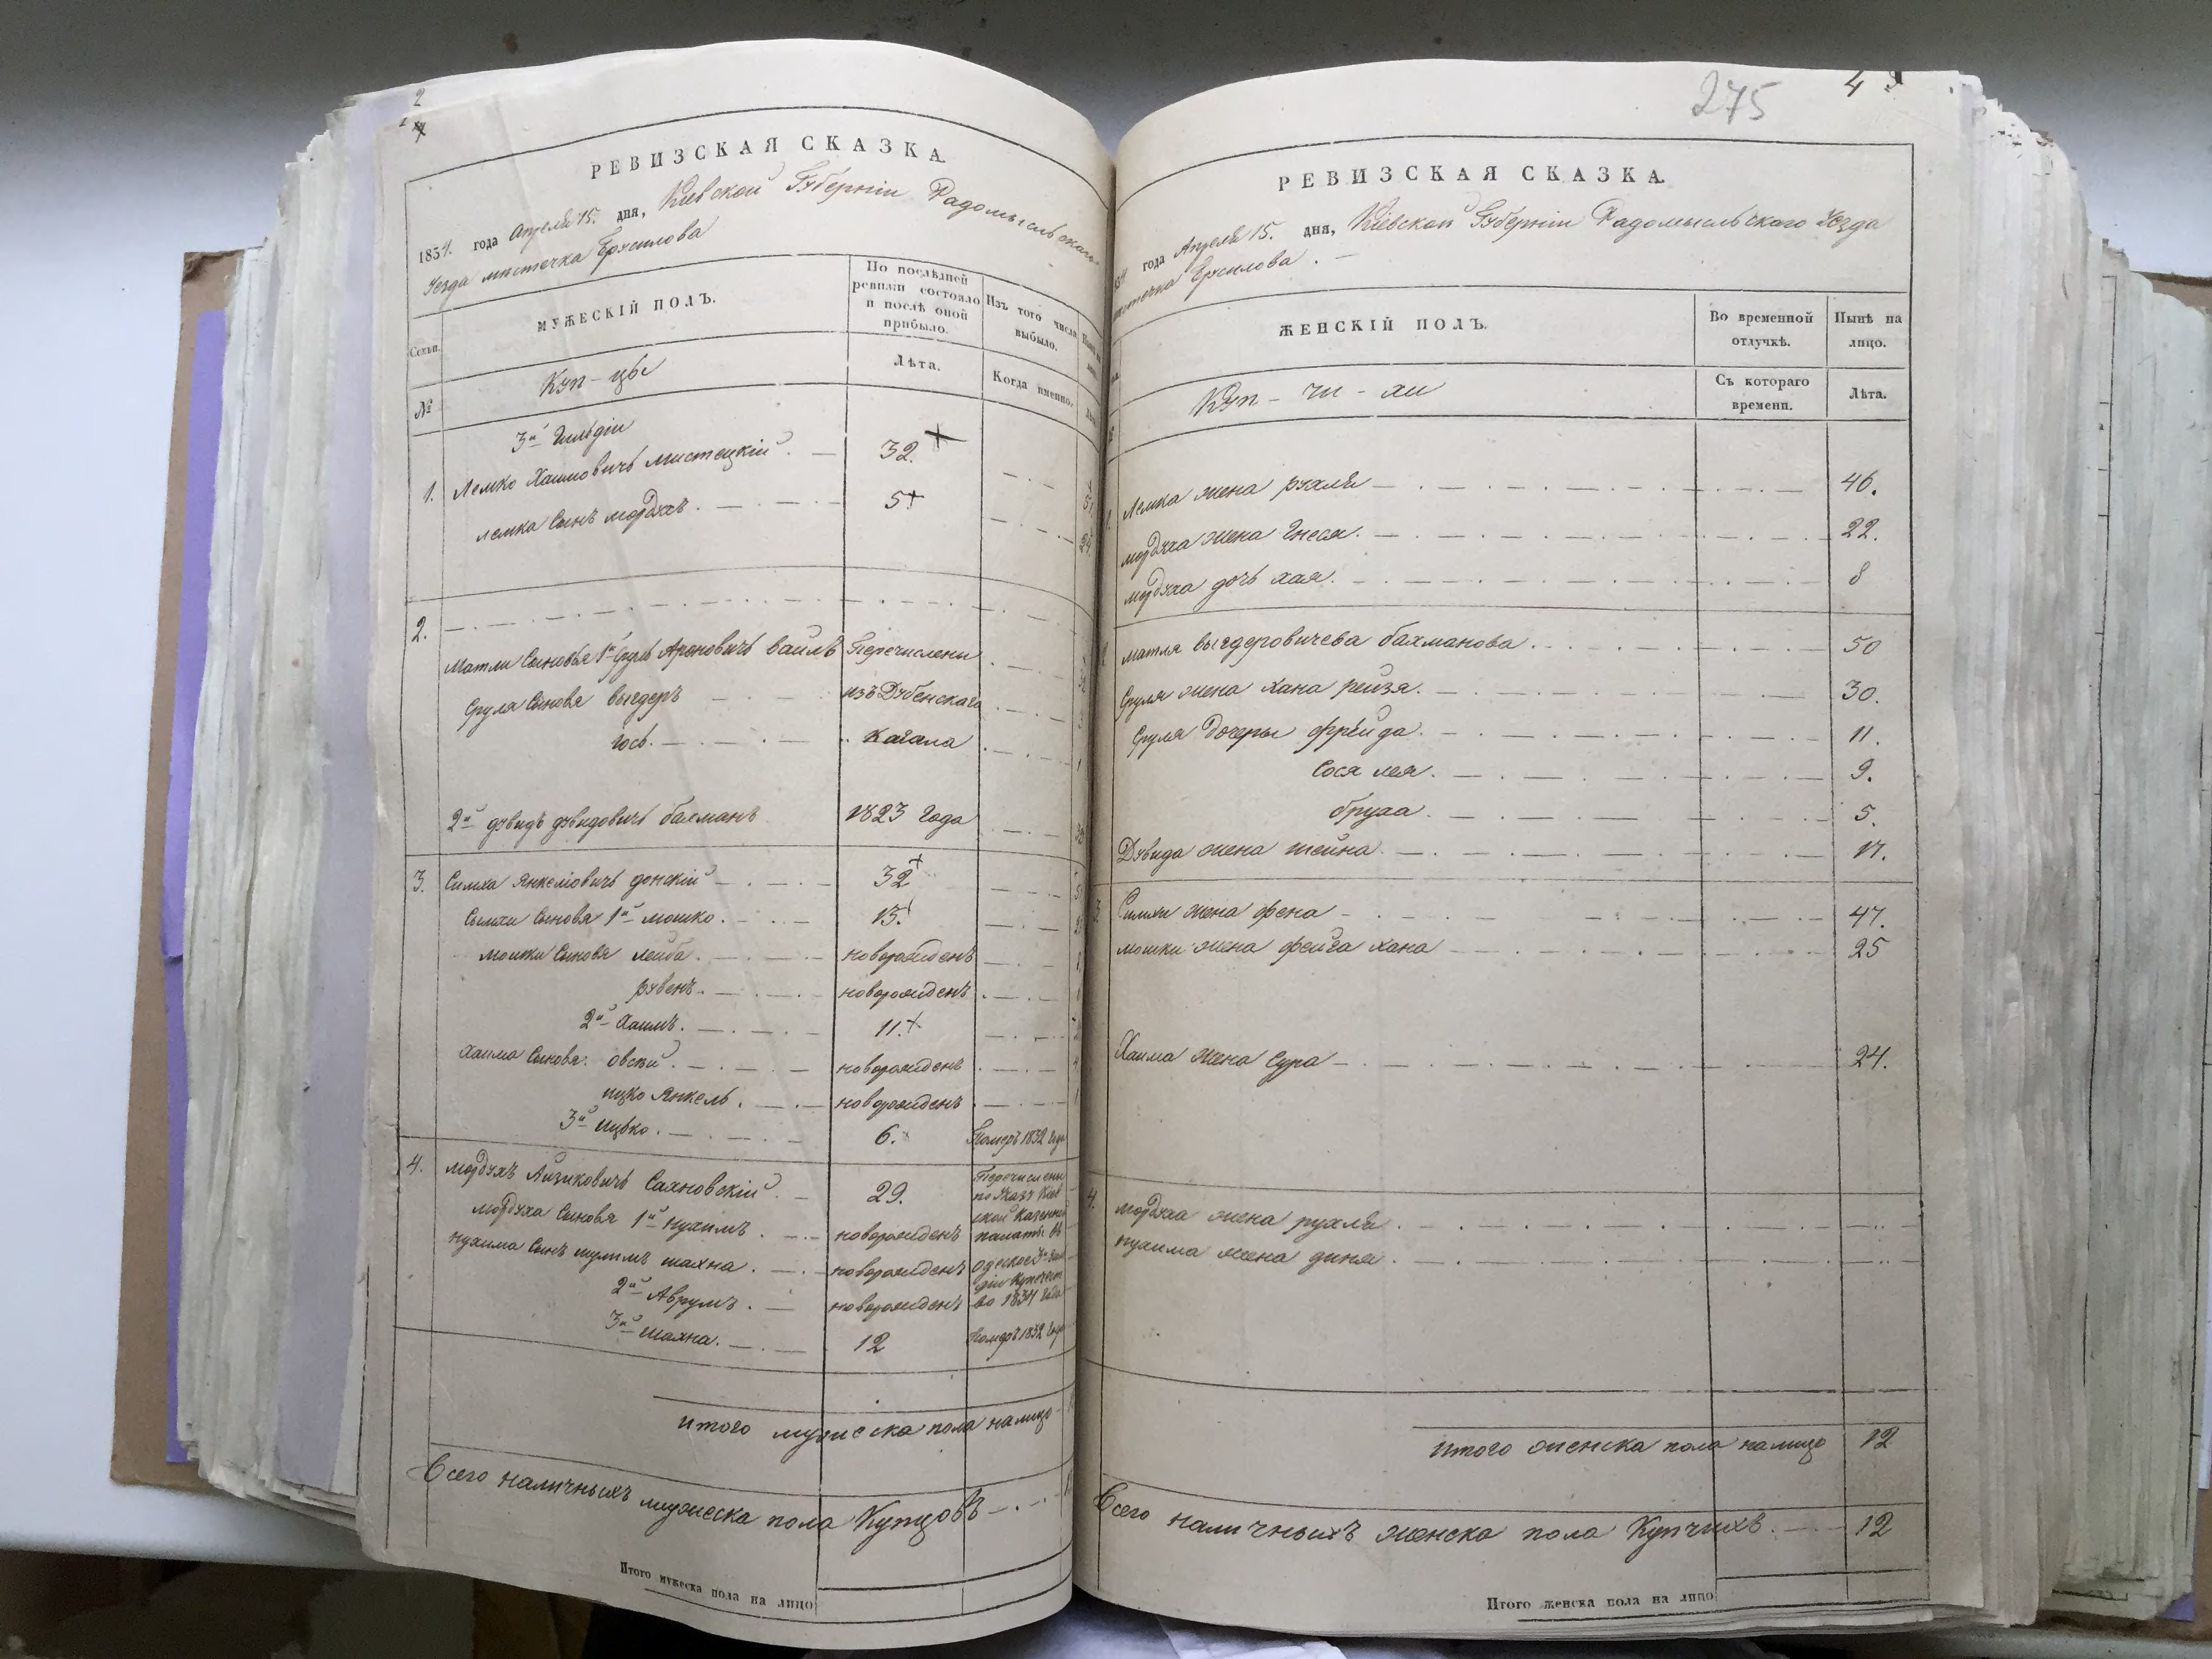 2
РЕВИЗСКАЯ СКАЗКА.
1834. года Апреля 15. дня, Кіевской Губерніи Радомысльского
Уезда местечка Брусилова
Семьи.
МУЖЕСКІЙ ПОЛЪ.
По послѣдней ревизіи состояло и послѣ оной прибыло.
Изъ того числа выбыло.
№
Куп - цы
Лѣта.
Когда именно.
3й Гильдіи
1. Лемко Хаимовичъ Мистецкій. 32.
Лемка Сынъ Мордухъ. 5
2.
Матли Сыновья 1й Сруль Ароновичъ Ваилъ Перечислены
Сруля Сыновя Выгдеръ изъ Дубенскаго
Іось. Кагала
2й Дувидъ Дувидовичъ Бахманъ 1823 Года
3. Симха Янкеліовичъ Донскій 32
Симхи Сыновя 1й Мошко. 13.
Мошки Сыновя Лейба. новорожденъ
Рувенъ. новорожденъ
2й Хаимъ. 11.
Хаима Сыновя: Овсѣй. новорожденъ
Ицко Янкель. новорожденъ
3й Ицько. 6. Померъ 1832 Года
4. Мордухъ Айзиковичъ Сахновскій. 29. Перечислены
по Указу Кіев
ской Казенной
палаты въ
Мордуха Сыновя 1й Нухимъ. новорожденъ
Нухима Сынъ Шулимъ Шахна. новорожденъ
2й Аврумъ. новорожденъ
во 1834 Года
3й Шахна. 12 Померъ 1832 Года
Итого мужеска пола налицо
Всего наличныхъ мужеска пола Купцовъ
Итого мужеска пола на лицо
275
4
РЕВИЗСКАЯ СКАЗКА.
года Апреля 15. дня, Кіевской Губерніи Радомысльского Уезда
местечка Брусилова.
ЖЕНСКІЙ ПОЛЪ.
Во временной отлучкѣ.
Нынѣ на лицо.
Куп - чи - хи
Съ котораго времени.
Лѣта.
Лемка жена Рухля 46.
Мордуха жена Гнеся. 22.
Мордуха дочь Хая. 8
Матля Выгдеровичева Бахманова. 50
Сруля жена Хана Рейзя. 30.
Сруля Дочеры Фрейда. 11.
Сося Лея. 9.
Бруха. 5.
Дувида жена Шейна. 17.
Симхи жена Фена 47.
Мошки жена Фейга Хана 25
Хаима жена Сура 24.
4. Мордуха жена Рухля.
Нухима жена Диня.
Итого женска пола налицо 12
Всего наличныхъ женска пола Купчихъ. 12
Итого женска пола на лицо